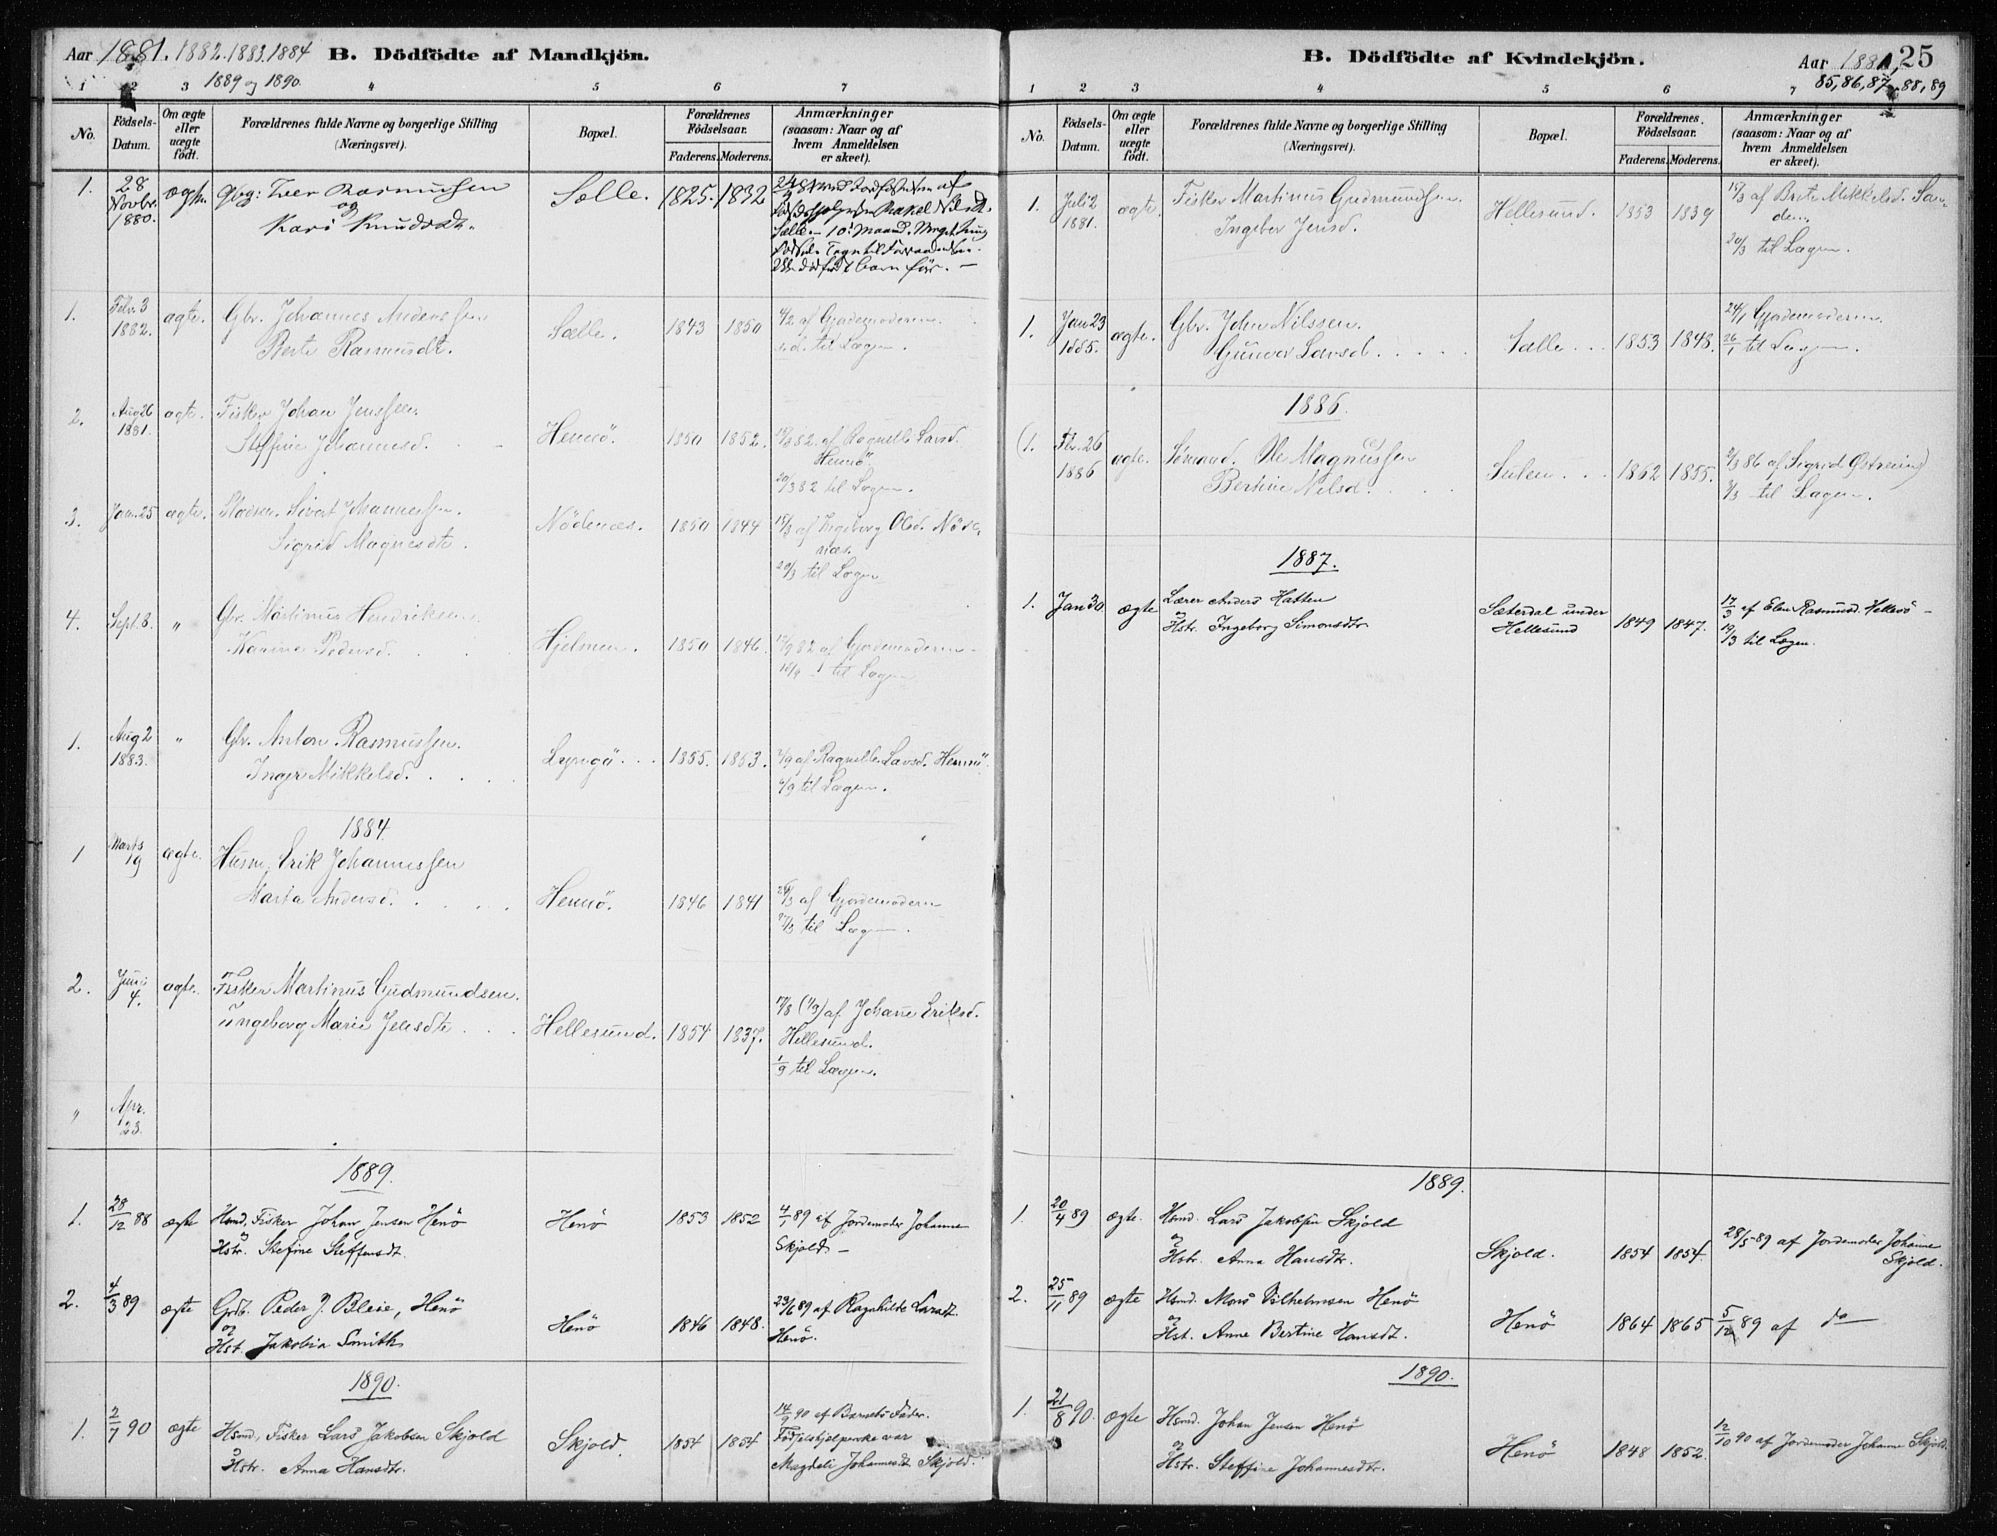 Aar 1881. 1882. 1883. 1884
B. Dödfödte af Mandkjön.
1889 og 1890.
1 2 3 4 5 6 7
No.
Födsels-Datum.
Om ægte eller uægte födt.
Forældrenes fulde Navne og borgerlige Stilling
(Næringsvei).
Bopæl.
Forældrenes Födselsaar.
Faderens. Moderens.
Anmærkninger
(saasom: Naar og af
hvem Anmeldelsen
er skeet).
1. 28 Novbr. 1880. ægte. Iver Rasmussen
og
Kari Knudsdt.
Sælle. 1825. 1832
1. Febr. 3 1882. ægte. Gbr. Johannes Anderssen
Berte Rasmusdt.
Sælle. 1843 1850
4/2 af Gjordemoderen
s.d. til Lægen.
2. Aug 26 1881. ægte. Fisker Johan Jenssen
Steffine Johannesd.
Hennö. 1850 1852.
af Ragnelle Larsd.
Hennö.
20/3 82 til Lægen.
3. Jan. 25 ægte. Sivert Johannessen.
Sigrid Magnesdtr.
Nödenæs. 1850 1844
15/3 af Ingeborg Olsd. Nöde-
næs.
20/3 til Lægen
4. Sept. 8. " Gbr. Martinus Hendriksen
Karine Pedersd.
Hjelmen. 1850 1846.
82 af Gjordemoderen
til Lægen
1. Aug 2 1883. " Gbr. Anton Rasmussen.
Inger Mikkelsd.
Lyngö. 1855. 1853.
4/9 af Ragnelle Larsd. Hennö.
4/9 til Lægen.
1884
1 Marts 19 ægte. Husm. Erik Johannessen
Marta Andersd.
Hennö. 1846 1841
af Gjordemoderen
til Lægen.
2. Juni 4. ægte. Fisker Martinus Gudmundsen.
Ingeborg Marie Jensdtr
Hellesund. 1854 1837.
af Johane Eriksd.
Hellesund.
1/9 til Lægen.
" Apr. 23.
1889.
1. 28/12 88 ægte Hsmd. Fisker Johan Jensen Henö
og
Hstr. Stefine Steffensdt.
Henö 1853 1852
4/1 89 af Jordemoder Johanne
Skjold –
2. 4/3 89 ægte Grdb. Peder J. Bleie, Henö
og
Hst. Jakobia Smith
Henö 1846 1848.
23/6 89 af Ragnhilde Larsdt.
Henö.
1890.
1. 2/7 90 ægte Hsmd, Fisker Lars Jakobsen Skjold
og
Hstr. Anna Hansdtr.
Skjold. 1854 1854
14/9 90 af Barnets Fader.
Födselshjelperske var
Magdeli Johannesdt Skjold.
B. Dödfödte af Kvindekjön.
Aar 1881, 25
85, 86, 87, 88, 89
1 2 3 4 5 6 7
No.
Födsels-Datum.
Om ægte eller uægte födt.
Forældrenes fulde Navne og borgerlige Stilling
(Næringsvei).
Bopæl.
Forældrenes Födselsaar.
Faderens. Moderens.
Anmærkninger
(saasom: Naar og af
hvem Anmeldelsen
er skeet).
1. Juli 2 1881. ægte. Fisker Martinus Gudmundsen.
Ingeber Jensd.
Hellesund. 1853 1839
15/3 af Brite Mikkelsd. San-
den.
20/3 til Lægen.
1. Jan 23 1885. ægte. Gbr. John Nilssen.
Gunver Larsd.
Sælle 1853 1848.
24/1 Gjordemoderen.
26/1 til Lægen.
1886.
(1. Fbr. 26 1886 ægte. Sömand. Ole Magnussen
Bertine Nilsd.
Sulen 1862 1855.
86 af Sigrid Östreim)
til Lægen.
1887.
1. Jan 30 ægte Lærer Anders Hatten
og
Hstr. Ingeborg Simonsdtr
Sæterdal under
Hellesund
1849 1847.
17/3 af Elen Rasmusd. Hellesö –
19/3 til Lægen.
1889.
1. 20/4 89 ægte. Hsmd. Lars Jakobsen Skjold
og
Hstr. Anna Hansdtr.
Skjold. 1854 1854.
28/5-89 af Jordemoder Johanne
Skjold.
2. 25/11 89 ægte Hsmd. Mons Vilhelmsen Henö
og
Hst. Anne Bertine Hansdt.
Henö 1864 1865
5/12 89 af do
1890.
1. 21/8 90. ægte Hsmd. Johan Jensen Henö
og
Hstr. Steffine Johannesdtr.
Henö 1848 1852
12/10 90 af Jordemoder Johanne Skjold.